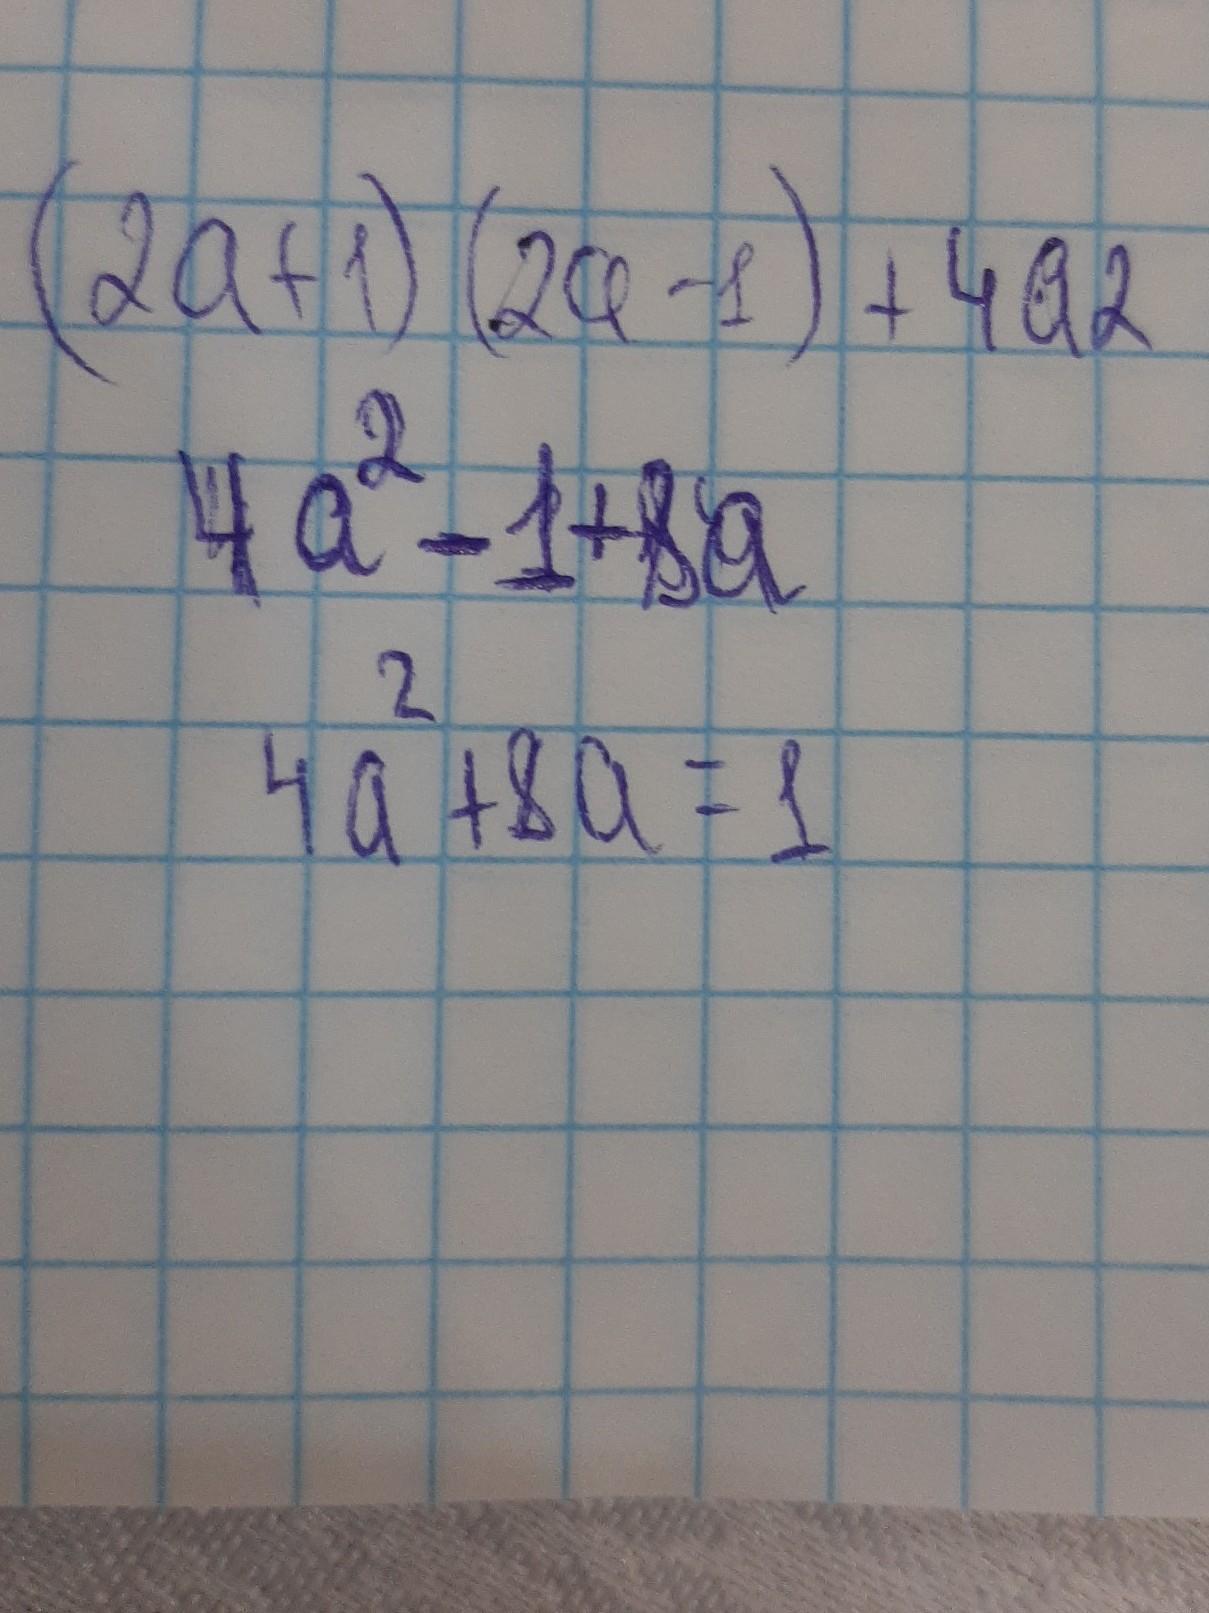 (2a+1)(2a-1)+4a2
4a²-1+8a
4a²+8a=1